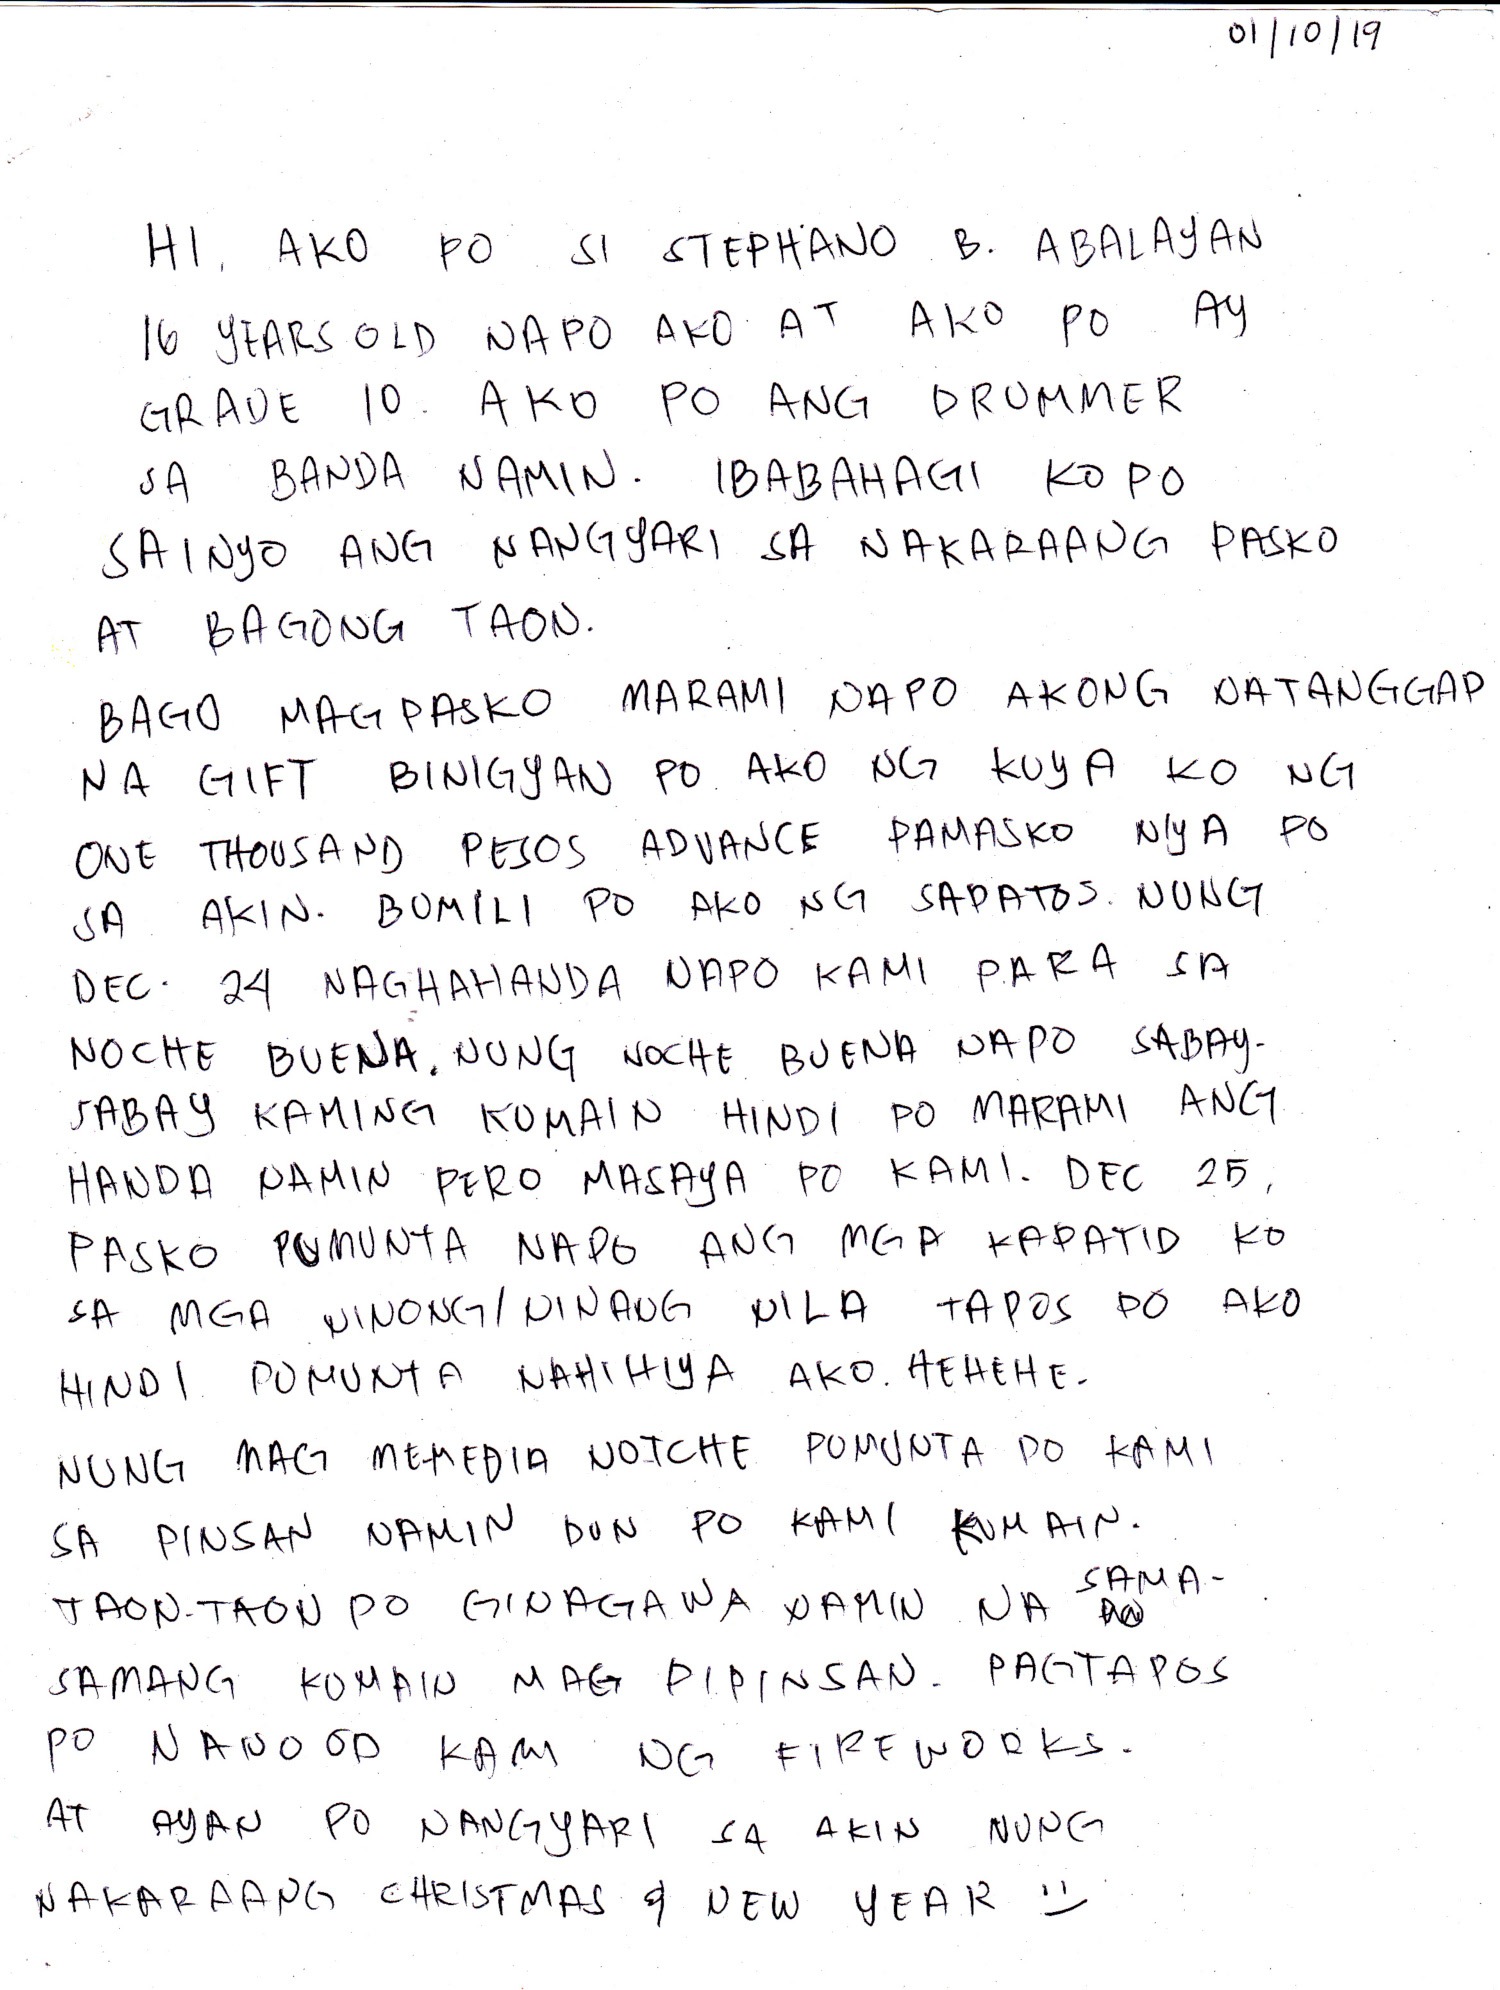 01/10/19
HI, AKO PO SI STEPHANO B. ABALAYAN
16 YEARS OLD NAPO AKO AT AKO PO AY
GRADE 10. AKO PO ANG DRUMMER
SA BANDA NAMIN. IBABAHAGI KO PO
SAINYO ANG NANGYARI SA NAKARAANG PASKO
AT BAGONG TAON.
BAGO MAGPASKO MARAMI NAPO AKONG NATANGGAP
NA GIFT BINIGYAN PO AKO NG KUYA KO NG
ONE THOUSAND PESOS ADVANCE PAMASKO NIYA PO
SA AKIN. BUMILI PO AKO NG SAPATOS. NUNG
DEC. 24 NAGHAHANDA NAPO KAMI PARA SA
NOCHE BUENA. NUNG NOCHE BUENA NAPO SABAY-
SABAY KAMING KUMAIN HINDI PO MARAMI ANG
HANDA NAMIN PERO MASAYA PO KAMI. DEC 25,
PASKO PUMUNTA NAPO ANG MGA KAPATID KO
SA MGA NINONG/NINANG NILA TAPOS PO AKO
HINDI PUMUNTA NAHIHIYA AKO. HEHEHE.
NUNG MAG MEMEDIA NOTCHE PUMUNTA PO KAMI
SA PINSAN NAMIN DUN PO KAMI KUMAIN.
TAON-TAON PO GINAGAWA NAMIN NA SAMA-
SAMANG KUMAIN MAG PIPINSAN. PAGTAPOS
PO NANOOD KAMI NG FIREWORKS.
AT AYAN PO NANGYARI SA AKIN NUNG
NAKARAANG CHRISTMAS & NEW YEAR :)